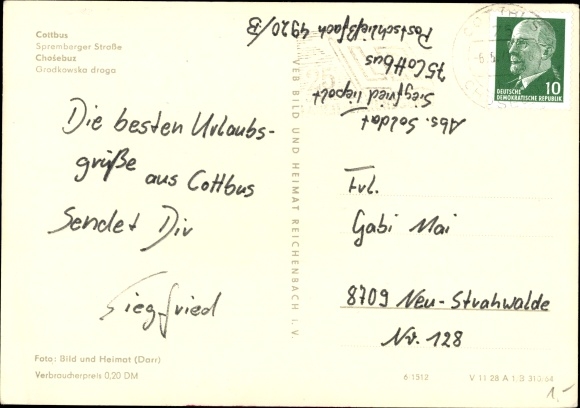 Cottbus
Spremberger Straße
Chośebuz
Grodkowska droga
Die besten Urlaubs-
grüße
aus Cottbus
Sendet Dir
Siegfried
Foto: Bild und Heimat (Darr)
Verbraucherpreis 0,20 DM
VEB BILD UND HEIMAT REICHENBACH I. V.
Abs. Soldat
Siegfried Liepolt
75 Cottbus
Postschließfach 4920/B
COTTBUS
DEUTSCHE
DEMOKRATISCHE REPUBLIK
10
Frl.
Gabi Mai
8709 Neu-Strahwalde
Nr. 128
6 1512
V 11 28 A 1 B 313/64
1.-